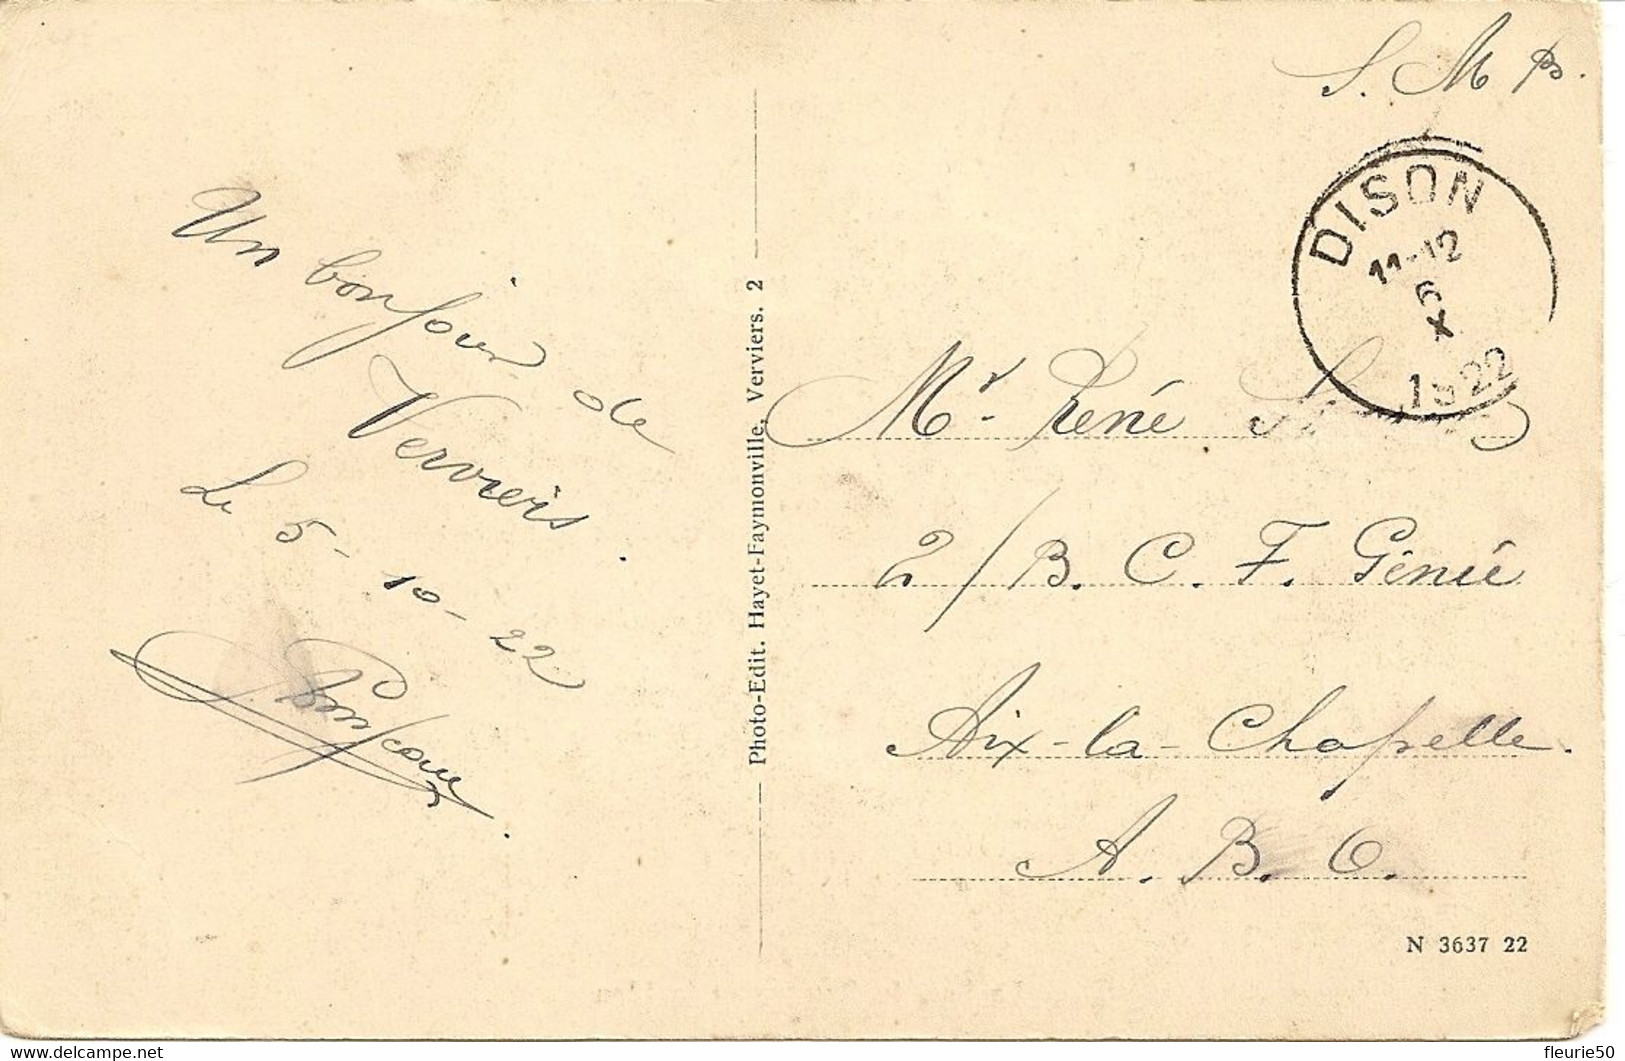 S. M B.
DISON
11-12
6
X
1922
Un bonjour de
Verviers.
Le 5-10-22
Photo-Edit. Hayet-Faymonville, Verviers. 2
Mr. René
2/B. C. F. Génie
Aix-la-Chapelle.
A. B. O.
N 3637 22
fleurie50